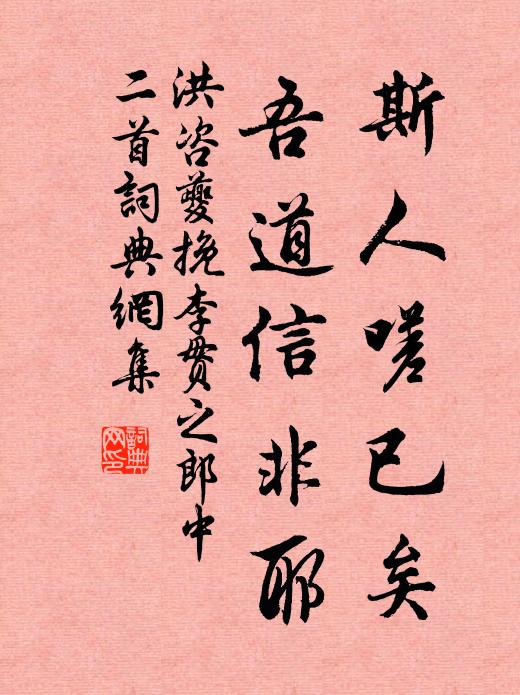 斯人嗟已矣
吾道信非耶
洪咨夔挽李贯之郎中
二首詞典網集
詞典
网印